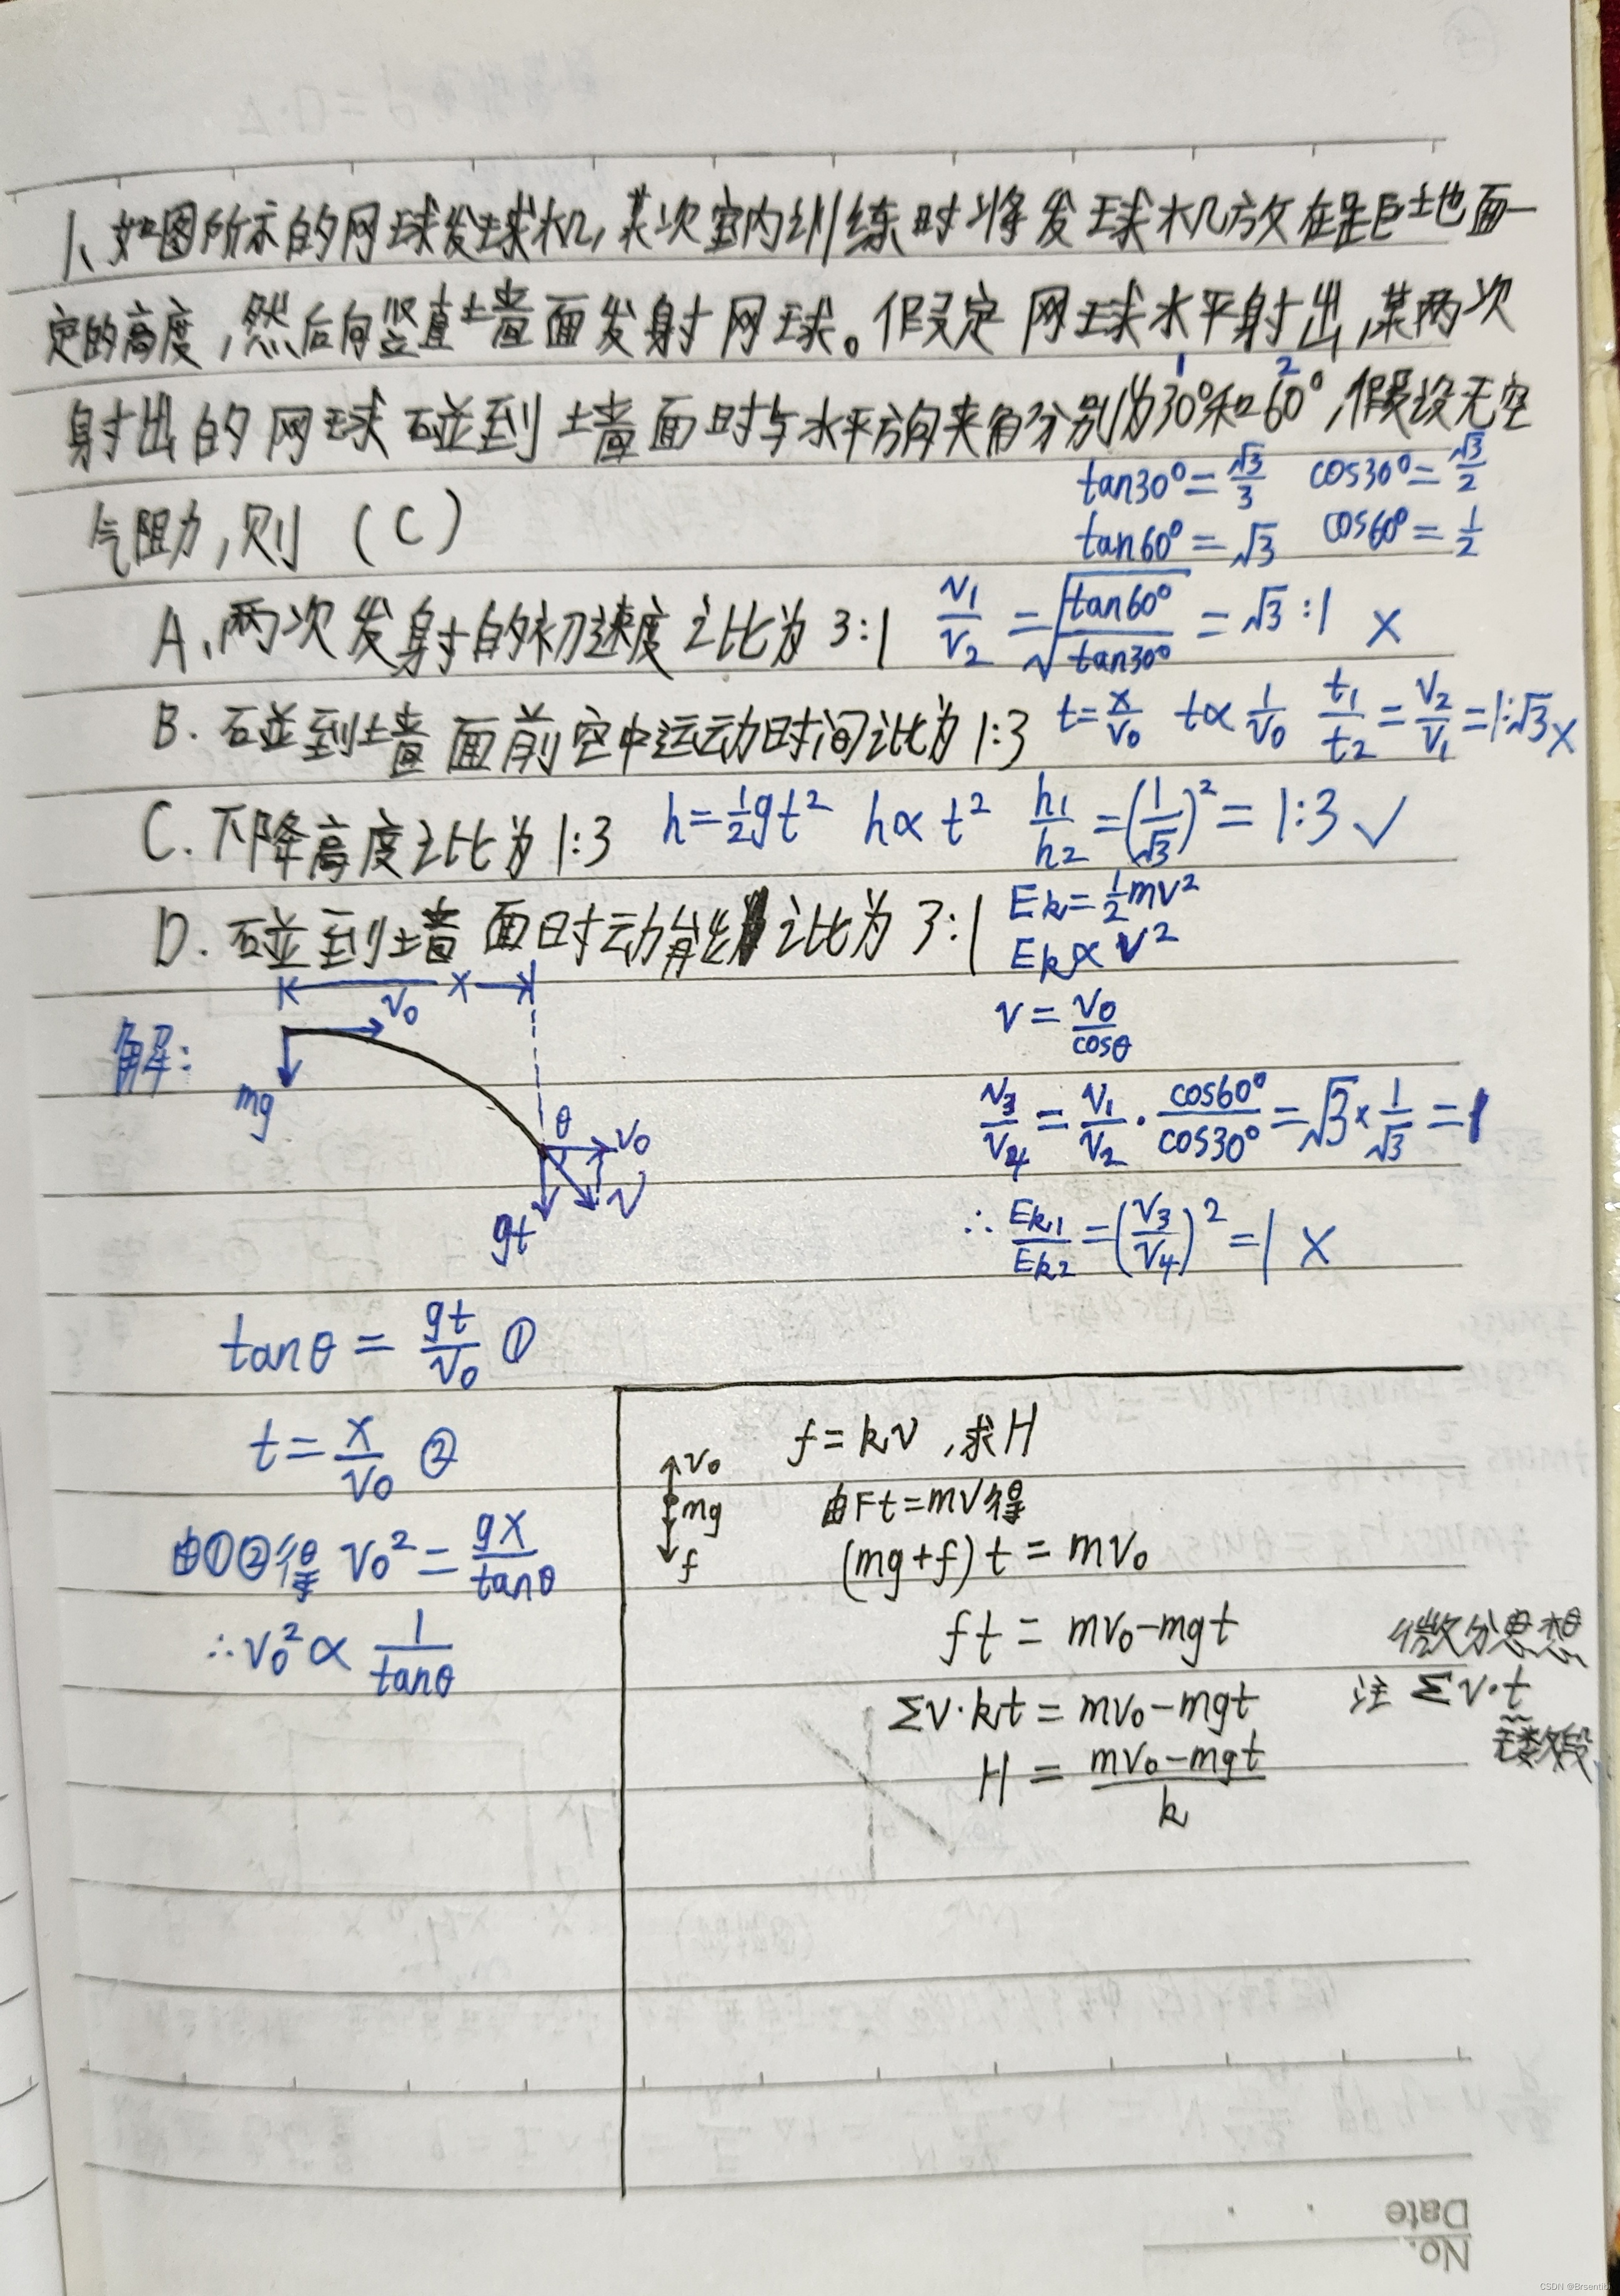 1、如图所示的网球发球机,某次室内训练时将发球机放在距地面一
定的高度,然后向竖直墙面发射网球。假定网球水平射出,某两次
1 2
射出的网球碰到墙面时与水平方向夹角分别为30°和60°,假设无空
tan30°=√3/3 cos30°=√3/2
气阻力,则 (C)
tan60°=√3 cos60°=1/2
A、两次发射的初速度之比为3:1 v1/v2=√(tan60°/tan30°)=√3:1 ×
B. 碰到墙面前空中运动时间之比为1:3 t=x/v0 t∝1/v0 t1/t2=v2/v1=1:√3 ×
C. 下降高度之比为1:3 h=½gt² h∝t² h1/h2=(1/√3)²=1:3 ✓
D. 碰到墙面时动能之比为3:1 Ek=½mv²
Ek∝v²
v=v0/cosθ
v3/v4=v1/v2·cos60°/cos30°=√3×1/√3=1
∴Ek1/Ek2=(v3/v4)²=1 ×
解:
x
v0
mg
θ
v0
v
gt
tanθ=gt/v0 ①
t=x/v0 ②
由①②得 v0²=gx/tanθ
∴v0²∝1/tanθ
f=kv,求H
v0
mg
f
由Ft=mv得
(mg+f)t=mv0
ft=mv0-mgt
Σv·kt=mv0-mgt
H=(mv0-mgt)/k
微分思想
注 Σv·t
无数段
No.
Date
CSDN @Brsentibi